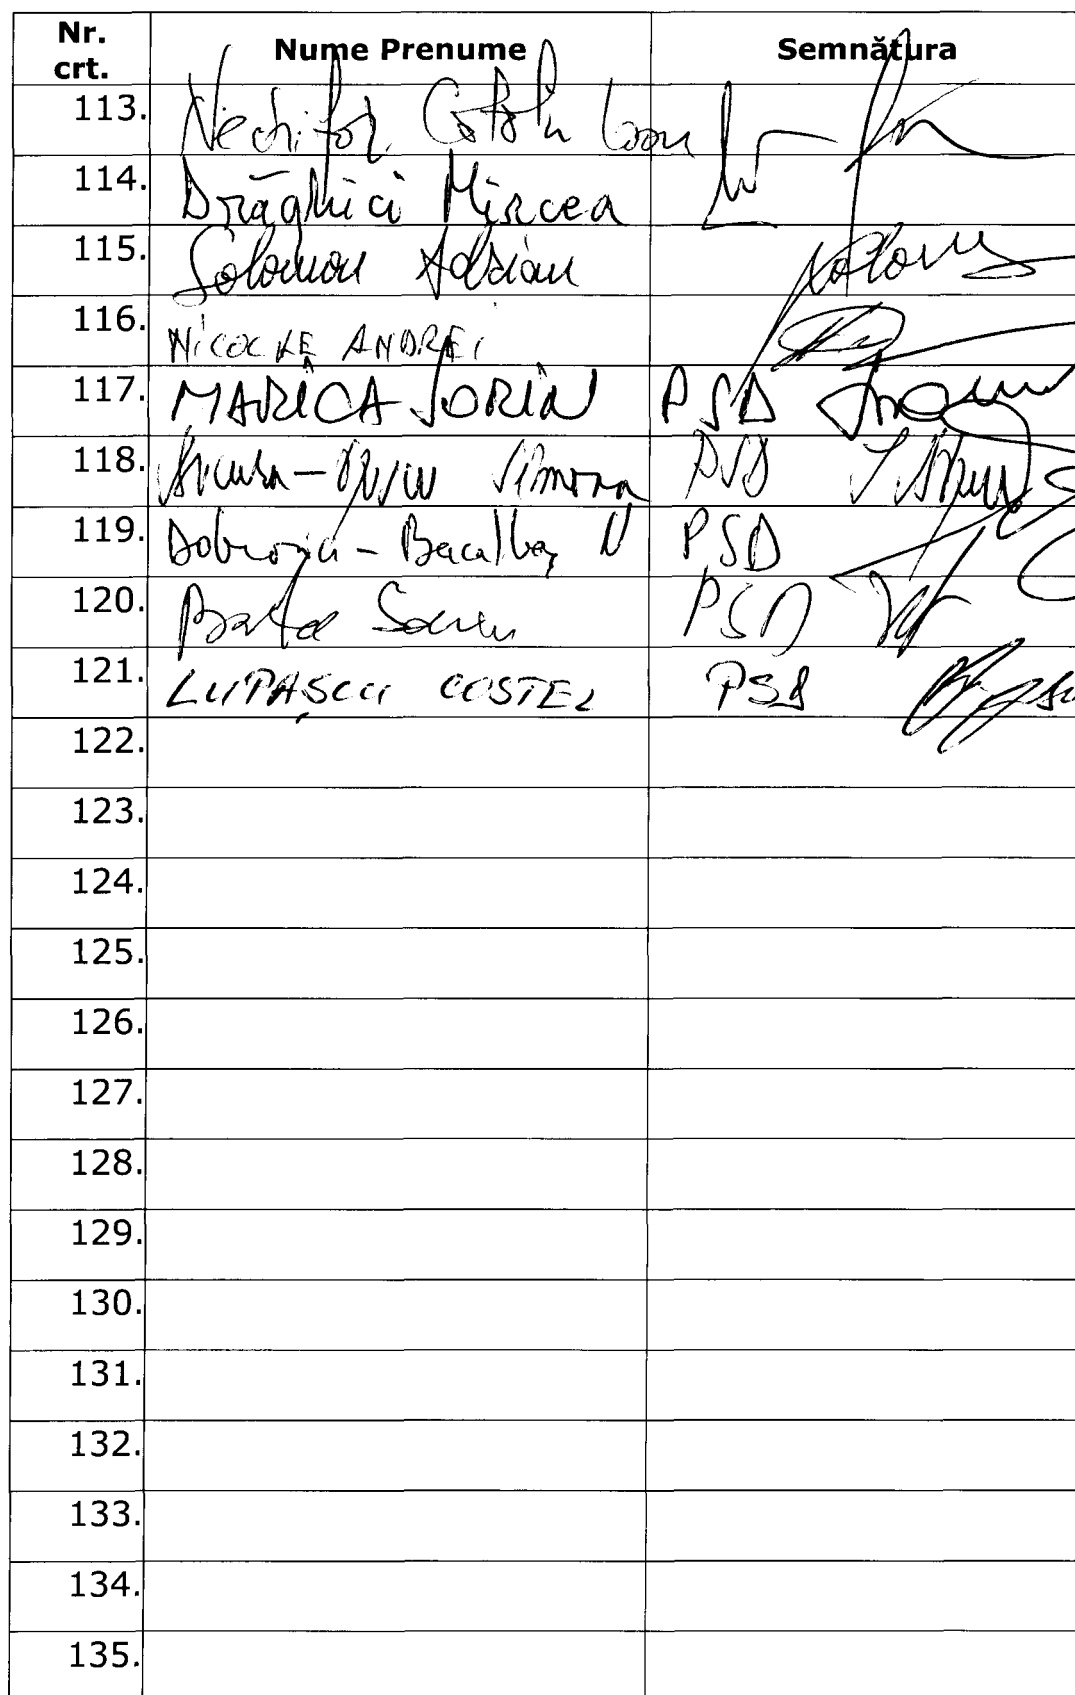 Nr. crt. Nume Prenume Semnătura
113. Nechifor Cătălin Ioan
114. Drăghici Mircea
115. Solomon Adrian
116. NICOLAE ANDREI
117. MARICA SORIN PSD
118. Simona PSD
119. Dobrovici-Bacalbaș N PSD
120. PSD
121. LUPAȘCU COSTEL PSD
122.
123.
124.
125.
126.
127.
128.
129.
130.
131.
132.
133.
134.
135.